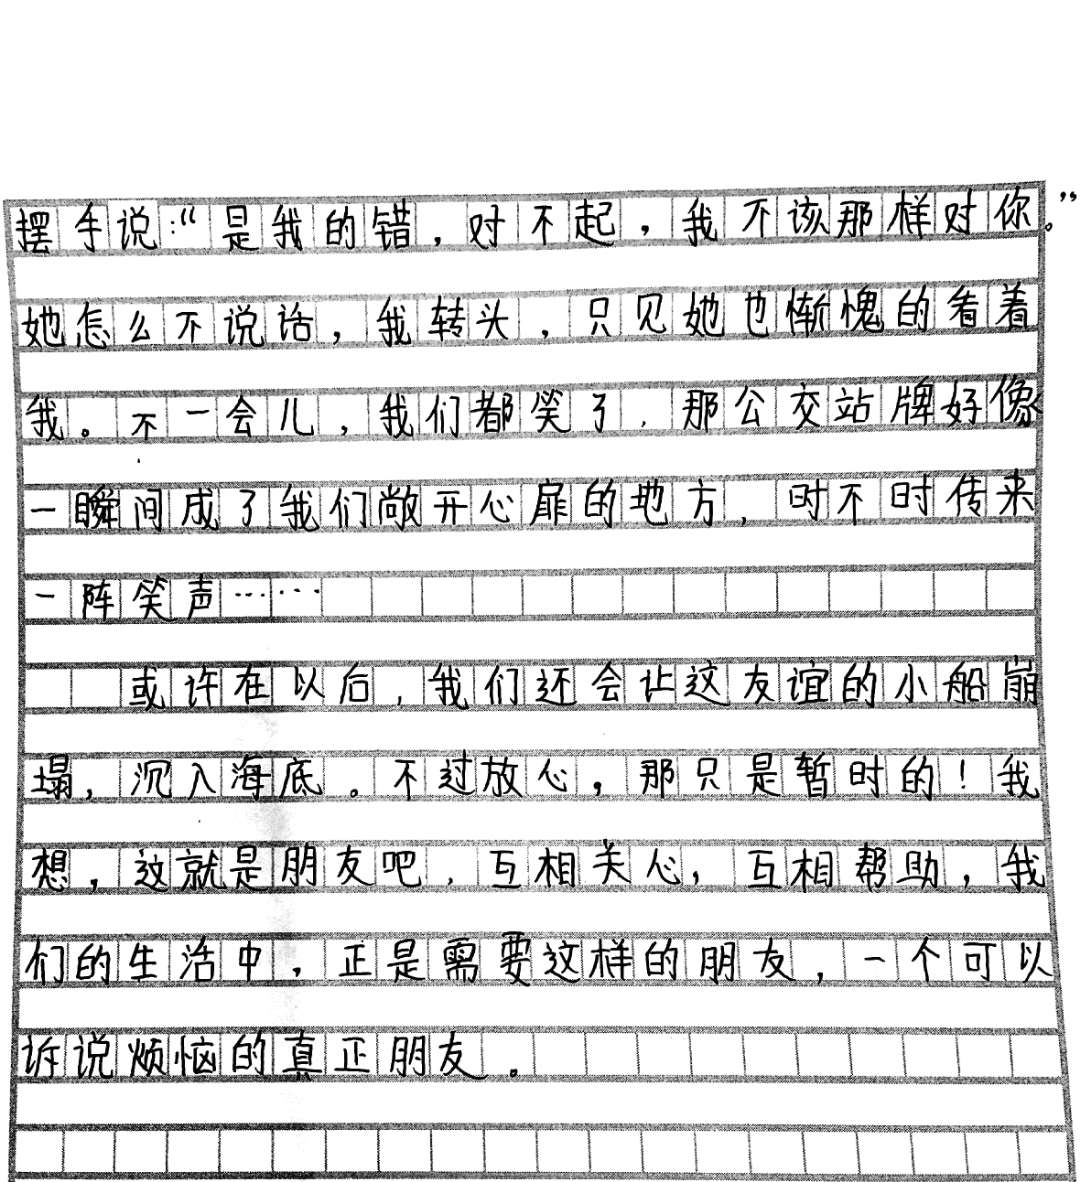 摆手说:“是我的错，对不起，我不该那样对你。”
她怎么不说话，我转头，只见她也惭愧的看着
我。不一会儿，我们都笑了，那公交站牌好像
一瞬间成了我们敞开心扉的地方，时不时传来
一阵笑声……
或许在以后，我们还会让这友谊的小船崩
塌，沉入海底。不过放心，那只是暂时的！我
想，这就是朋友吧，互相关心，互相帮助，我
们的生活中，正是需要这样的朋友，一个可以
诉说烦恼的真正朋友。